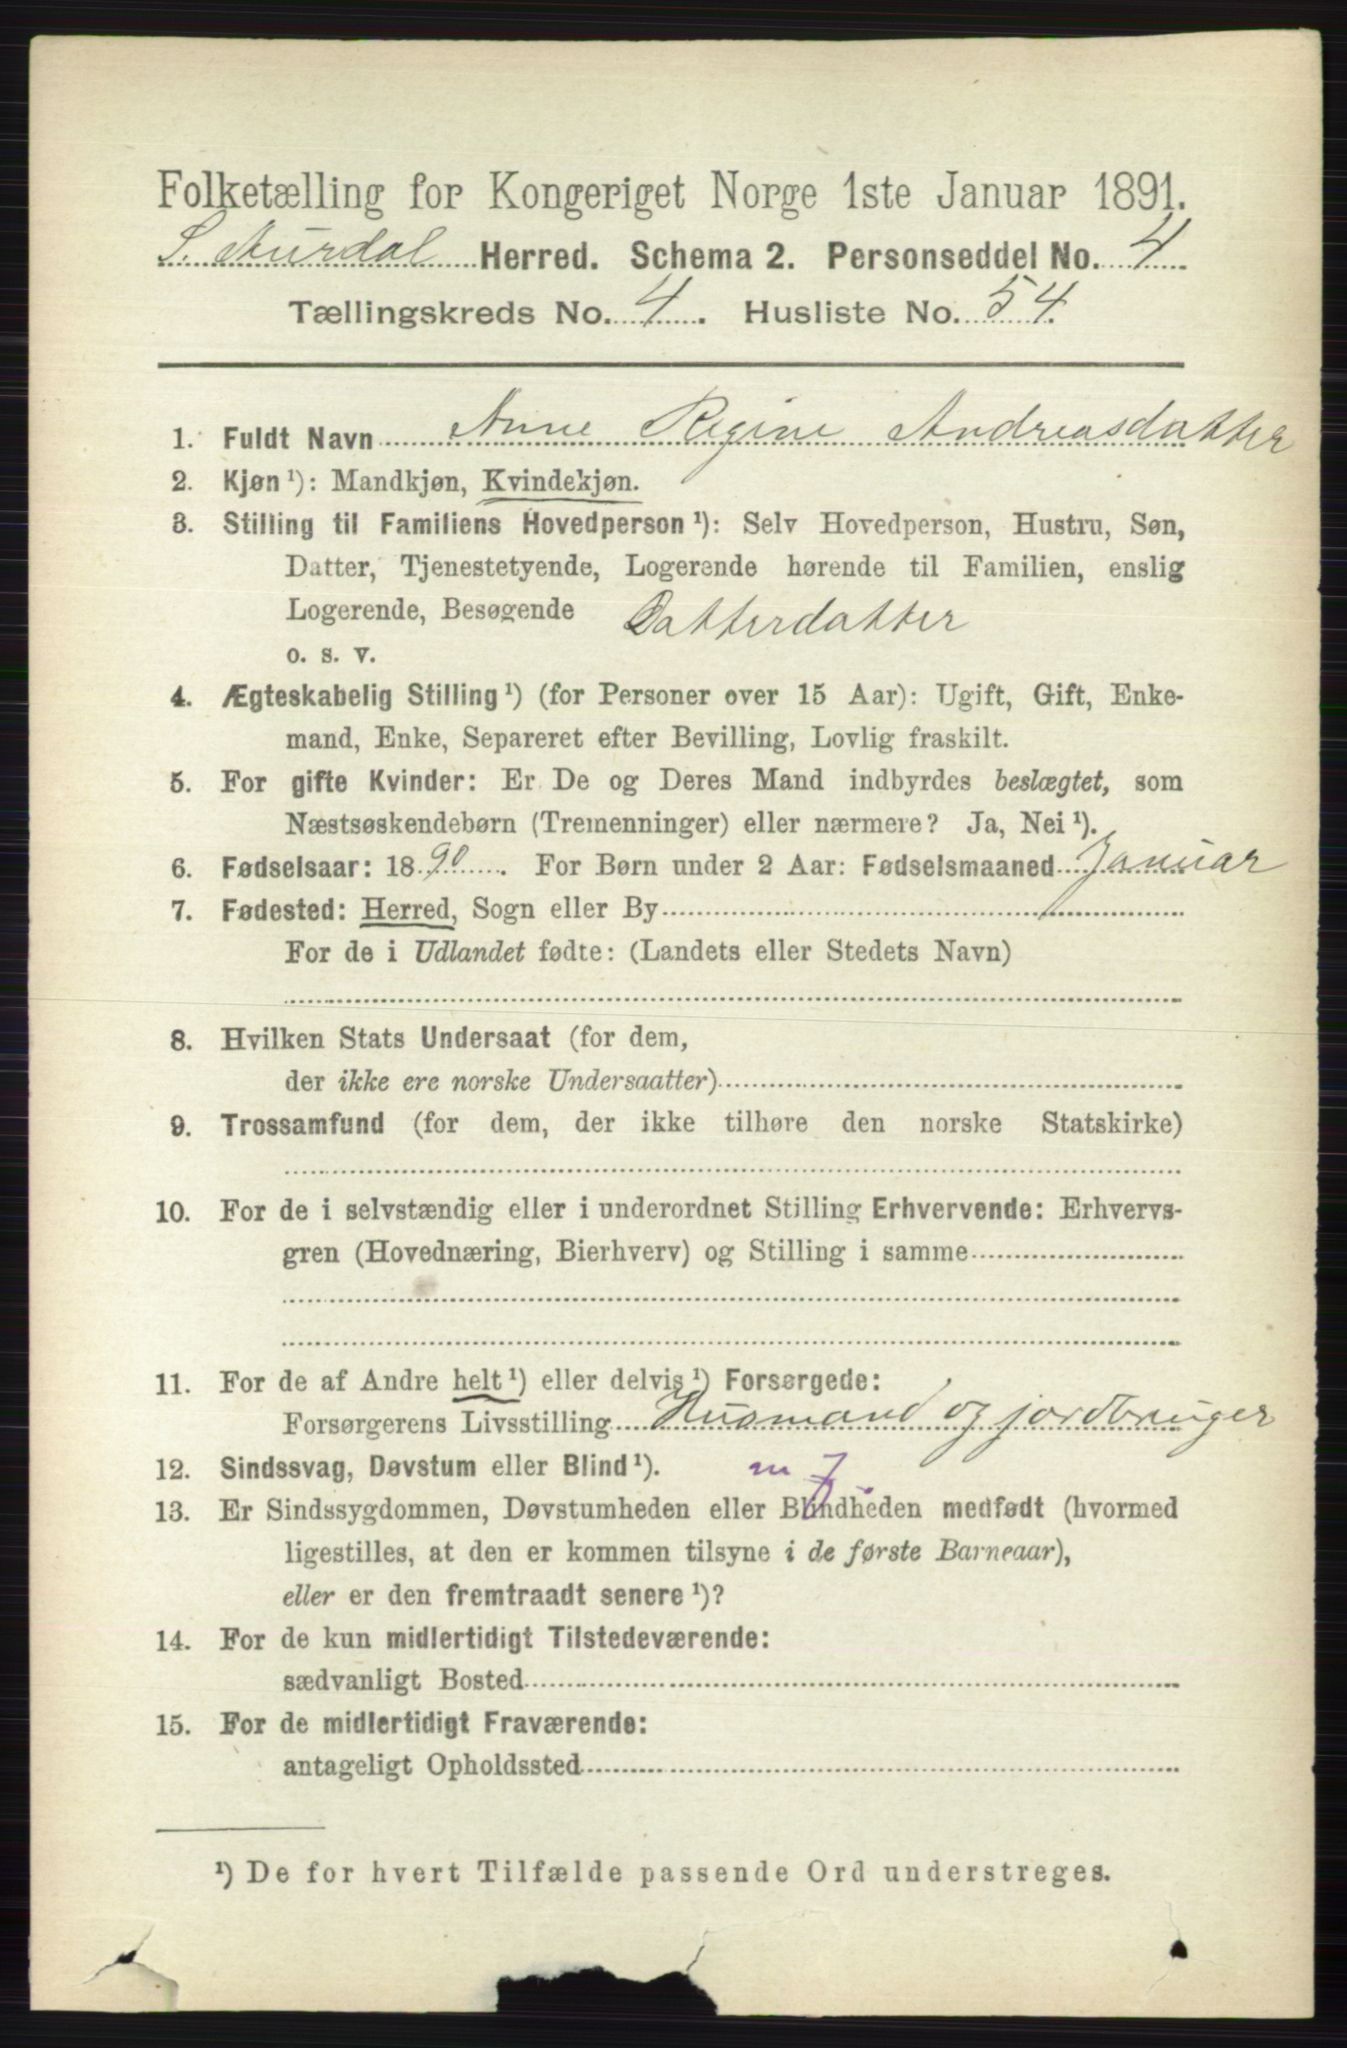 Folketælling for Kongeriget Norge 1ste Januar 1891.
S. Aurdal Herred. Schema 2. Personseddel No. 4
Tællingskreds No. 4. Husliste No. 54.
1. Fuldt Navn Anne Regine Andreasdatter
2. Kjøn ¹): Mandkjøn, Kvindekjøn.
3. Stilling til Familiens Hovedperson ¹): Selv Hovedperson, Hustru, Søn,
Datter, Tjenestetyende, Logerende hørende til Familien, enslig
Logerende, Besøgende Datterdatter
o. s. v.
4. Ægteskabelig Stilling ¹) (for Personer over 15 Aar): Ugift, Gift, Enke-
mand, Enke, Separeret efter Bevilling, Lovlig fraskilt.
5. For gifte Kvinder: Er De og Deres Mand indbyrdes beslægtet, som
Næstsøskendebørn (Tremenninger) eller nærmere? Ja, Nei ¹).
6. Fødselsaar: 1890. For Børn under 2 Aar: Fødselsmaaned Januar
7. Fødested: Herred, Sogn eller By
For de i Udlandet fødte: (Landets eller Stedets Navn)
8. Hvilken Stats Undersaat (for dem,
der ikke ere norske Undersaatter)
9. Trossamfund (for dem, der ikke tilhøre den norske Statskirke)
10. For de i selvstændig eller i underordnet Stilling Erhvervende: Erhvervs-
gren (Hovednæring, Bierhverv) og Stilling i samme
11. For de af Andre helt ¹) eller delvis ¹) Forsørgede:
Forsørgerens Livsstilling Husmand og jordbruger
12. Sindssvag, Døvstum eller Blind ¹). m J
13. Er Sindssygdommen, Døvstumheden eller Blindheden medfødt (hvormed
ligestilles, at den er kommen tilsyne i de første Barneaar),
eller er den fremtraadt senere ¹)?
14. For de kun midlertidigt Tilstedeværende:
sædvanligt Bosted
15. For de midlertidigt Fraværende:
antageligt Opholdssted
¹) De for hvert Tilfælde passende Ord understreges.